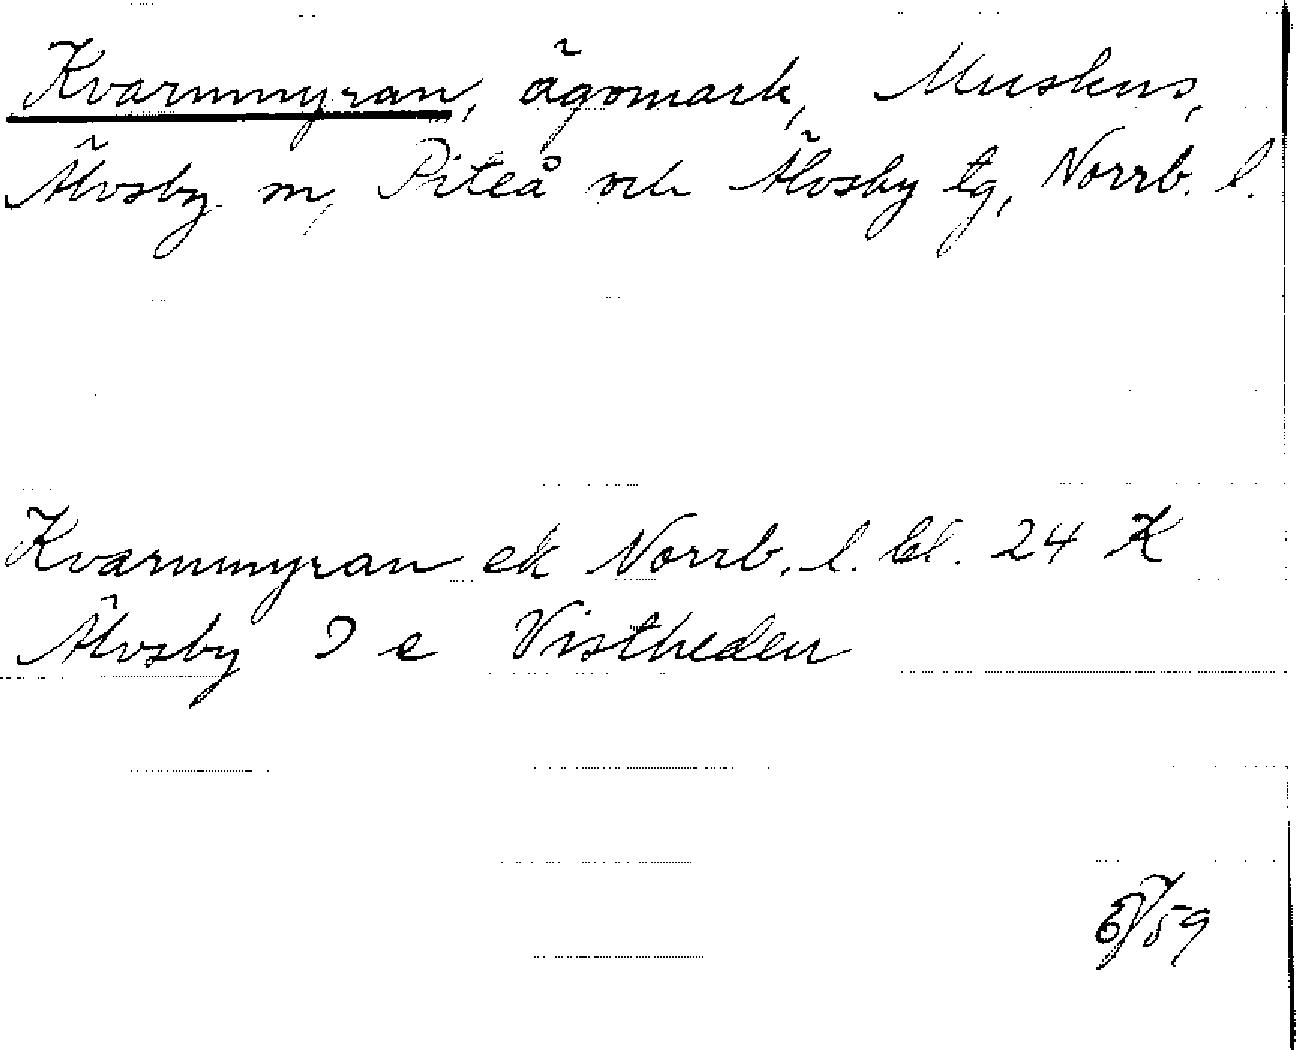 Kvarnmyran, ägomark, Muskus,
Älvsby m, Piteå och Älvsby tg, Norrb. l.
Kvarnmyran ek Norrb. l. bl. 24 K
Älvsby 9 e Vistheden
59